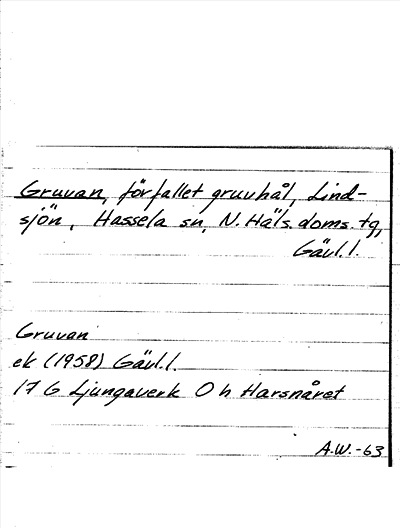 Gruvan, förfallet gruvhål, Lind-
sjön, Hassela sn, N. Häls. doms. tg,
Gävl.l.
Gruvan
ek (1958) Gävl.l.
17 G Ljungaverk O h Harsnåret
A.W.-63